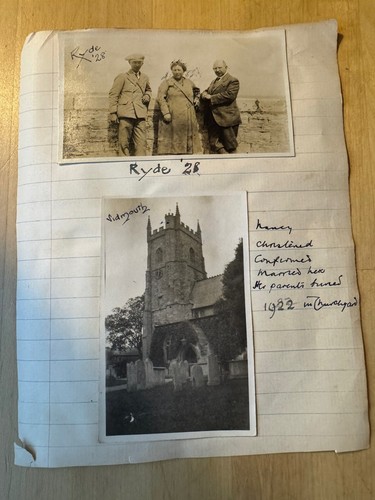 Ryde
'28
Ryde '28
Sidmouth
Nancy
Christened
Confirmed
Married here
Her parents buried
1922 in Churchyard